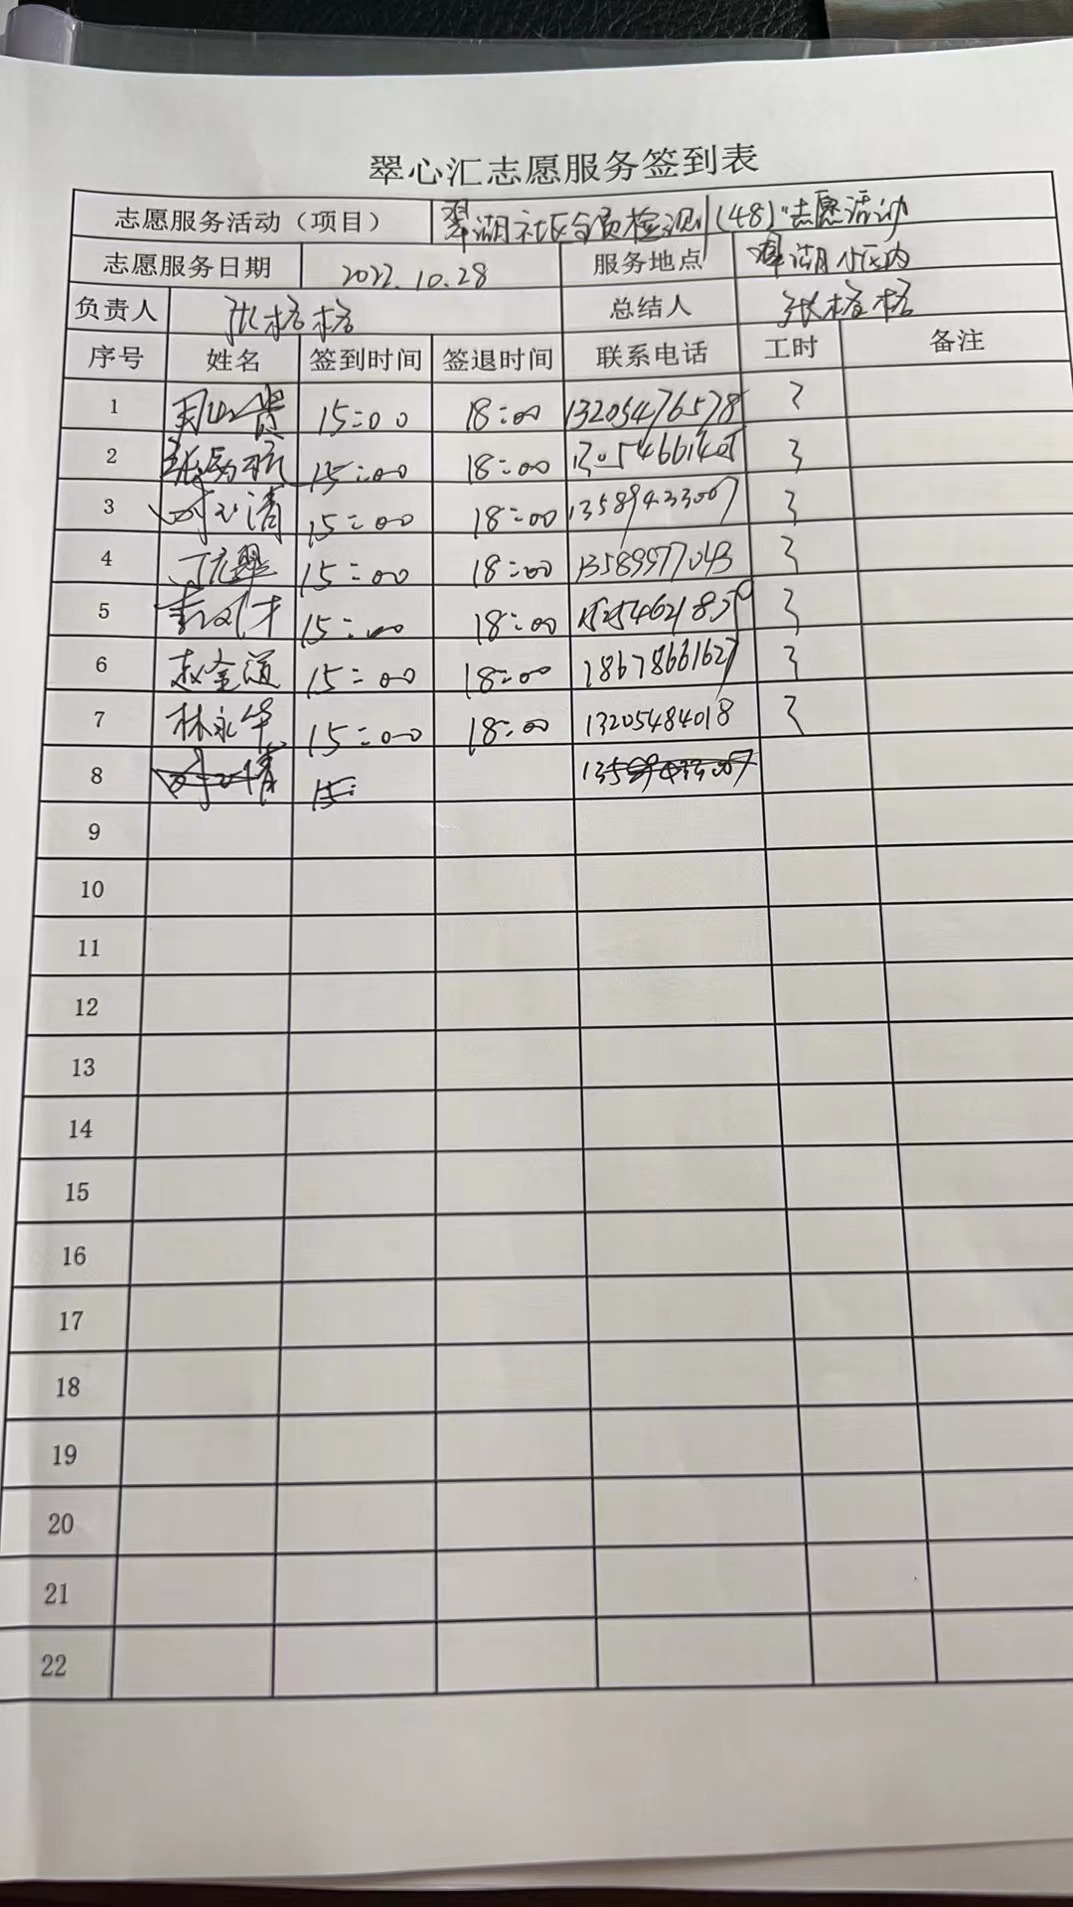 翠心汇志愿服务签到表
志愿服务活动（项目） 翠湖社区全员检测(48)"志愿活动
志愿服务日期 2022.10.28 服务地点 翠湖小区内
负责人 张格格 总结人 张格格
序号 姓名 签到时间 签退时间 联系电话 工时 备注
1 15:00 18:00 13205476578 3
2 15:00 18:00 3
3 15:00 18:00 13589433007 3
4 丁元翠 15:00 18:00 13589977043 3
5 15:00 18:00 15254621850 3
6 赵金道 15:00 18:00 18678661627 3
7 林永华 15:00 18:00 13205484018 3
8 15: 13589433007
9
10
11
12
13
14
15
16
17
18
19
20
21
22